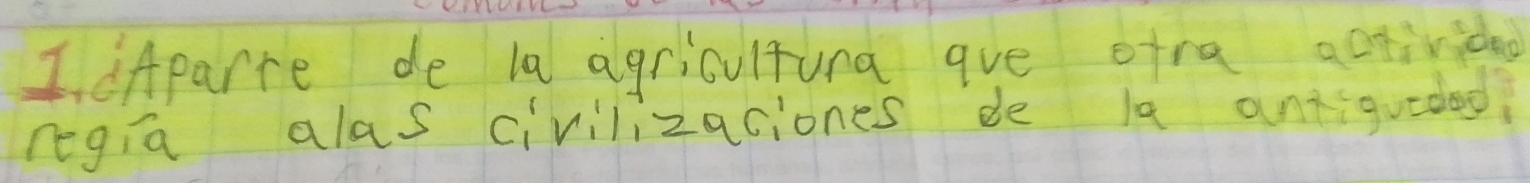 1. ¿Aparte de la agricultura que otra actividad
regía alas civilizaciones de la antiguedad?